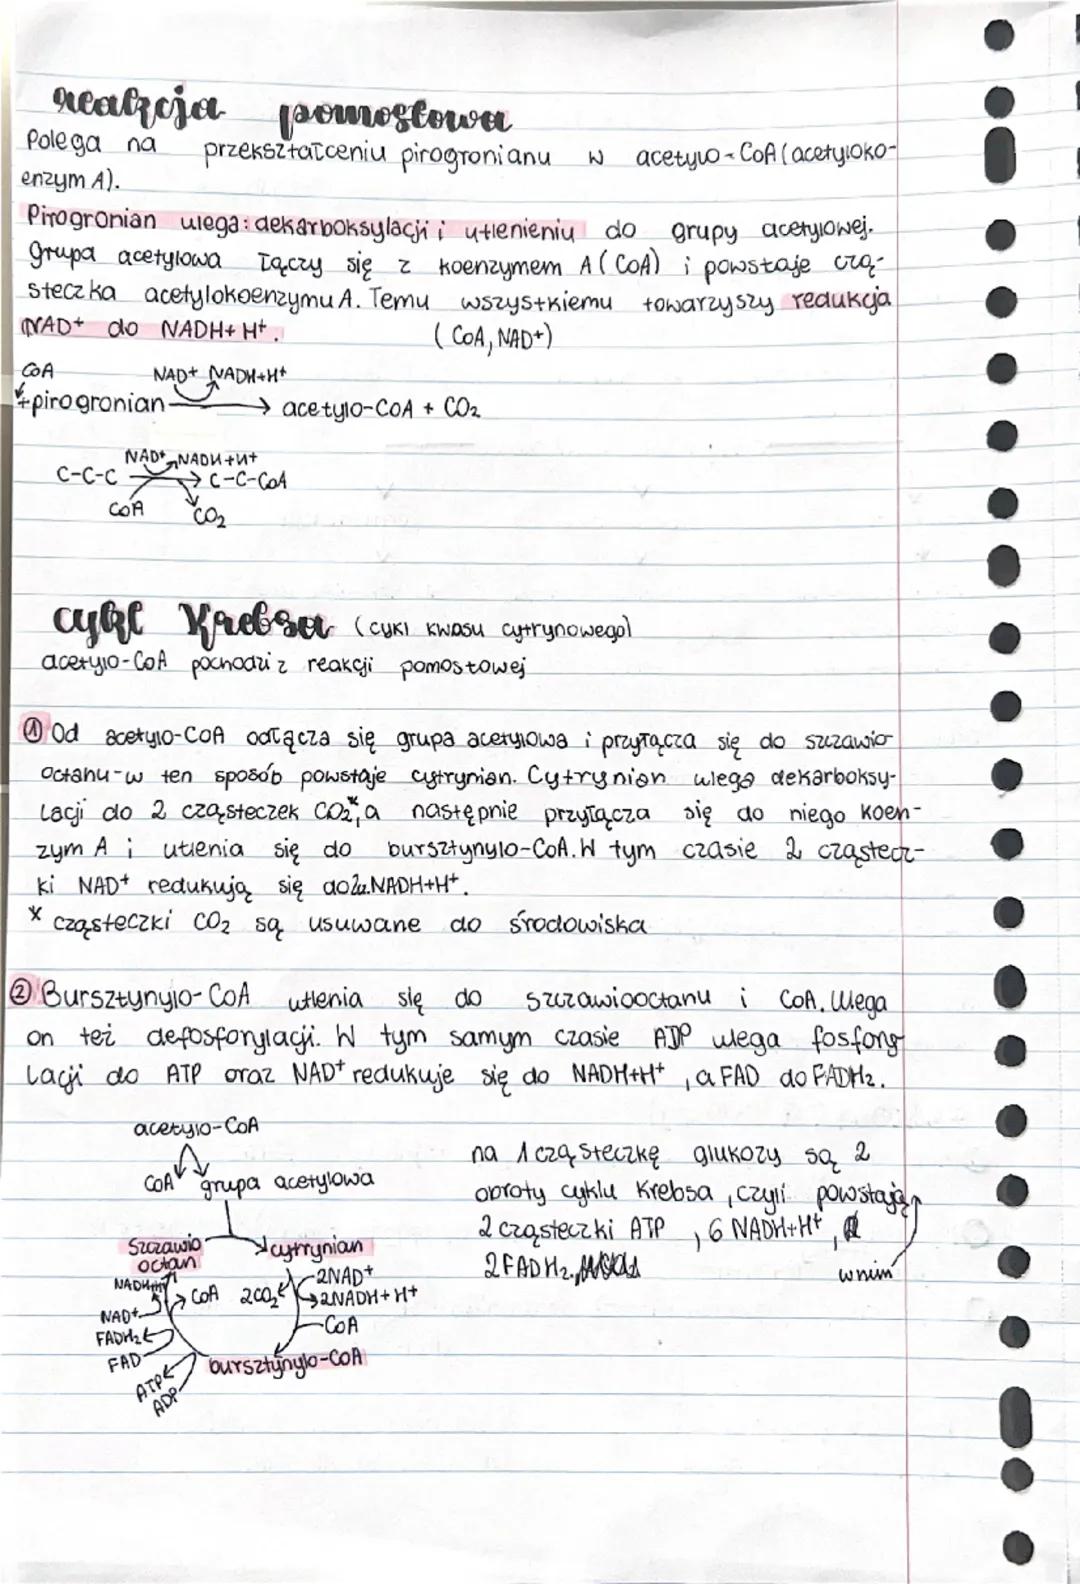 reakcja pomostowa
Polega na przekształceniu pirogronianu w acetylo-CoA (acetyloko-
enzym A).
Pirogronian ulega: dekarboksylacji i utlenieniu do grupy acetylowej.
Grupa acetylowa łączy się z koenzymem A (CoA) i powstaje czą-
steczka acetylokoenzymu A. Temu wszystkiemu towarzyszy redukcja
NAD+ do NADH+H+. (CoA, NAD+)
CoA NAD+ NADH+H+
+pirogronian → acetylo-CoA + CO2
NAD+ NADH+H+
C-C-C → C-C-CoA
CoA CO2
cykl Krebsa (cykl kwasu cytrynowego)
acetylo-CoA pochodzi z reakcji pomostowej
① Od acetylo-CoA odłącza się grupa acetylowa i przyłącza się do szczawio
octanu-w ten sposób powstaje cytrynian. Cytrynian ulega dekarboksy-
lacji do 2 cząsteczek CO2*, a następnie przyłącza się do niego koen-
zym A i utlenia się do bursztynylo-CoA. W tym czasie 2 cząstecz-
ki NAD+ redukują się do 2 NADH+H+.
* cząsteczki CO2 są usuwane do środowiska
② Bursztynylo-CoA utlenia się do szczawiooctanu i CoA. Ulega
on też defosforylacji. W tym samym czasie ADP ulega fosfory
lacji do ATP oraz NAD+ redukuje się do NADH+H+, a FAD do FADH2.
acetylo-CoA
CoA grupa acetylowa
szczawio
octan
cytrynian
NADH+H+
NAD+
FADH2
FAD
ATP
ADP
CoA
2CO2
2NAD+
2NADH+H+
CoA
bursztynylo-CoA
na 1 cząsteczkę glukozy są 2
obroty cyklu Krebsa, czyli powstają
2 cząsteczki ATP, 6 NADH+H+,
2FADH2.
w nim